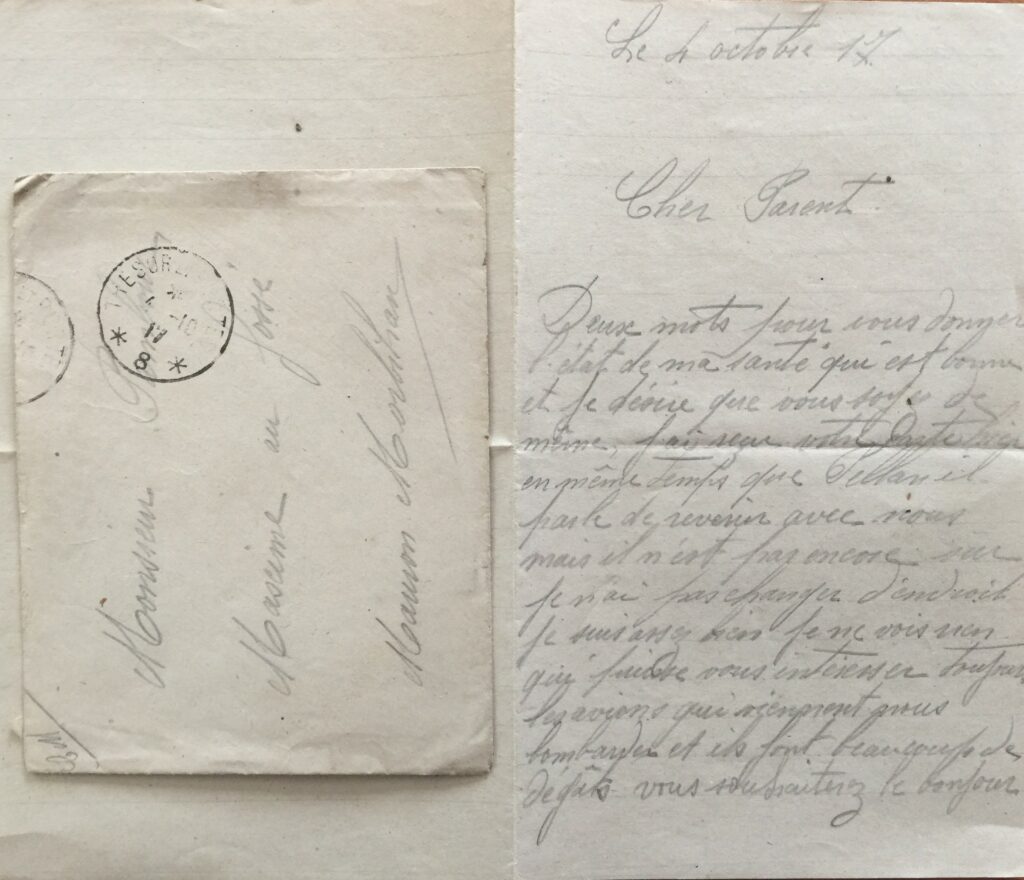 Monsieur
Mascime au fossé
Mauron Morbihan
TRESOR
4 10
17
* 8 *
Le 4 octobre 17
Cher Parent
Deux mots pour vous donner
l'état de ma santé qui est bonne
et je désire que vous soyez de
même, j'ai reçu votre
en même temps que il
parle de revenir avec nous
mais il n'est pas encore sur
je n'ai pas changer d'endroit
je suis assez bien je ne vois rien
qui puisse vous intéresser toujours
les avions qui viennent nous
bombarder et ils font beaucoup de
dégats vous souhaiterez le bonjour